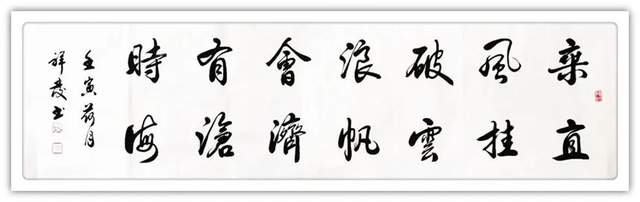 乘風破浪會有時
直挂雲帆濟滄海
壬寅荷月
祥發书